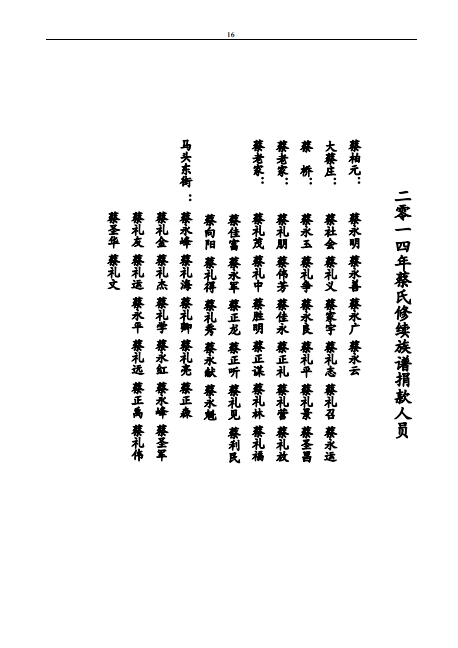 16
二零一四年蔡氏修续族谱捐款人员
蔡柏元： 蔡永明 蔡永善 蔡永广 蔡永云
大蔡庄： 蔡社会 蔡礼义 蔡家宇 蔡礼志 蔡礼召 蔡永运
蔡 桥： 蔡永玉 蔡礼争 蔡永良 蔡礼平 蔡礼景 蔡圣昌
蔡老家： 蔡礼朋 蔡伟芳 蔡佳永 蔡正礼 蔡礼营 蔡礼放
蔡老家： 蔡礼茂 蔡礼中 蔡胜明 蔡正谋 蔡礼林 蔡礼福
蔡佳富 蔡永军 蔡正龙 蔡正听 蔡礼见 蔡利民
蔡向阳 蔡礼得 蔡礼秀 蔡永献 蔡永魁
马头东街： 蔡永峰 蔡礼海 蔡礼卿 蔡礼亮 蔡正森
蔡礼金 蔡礼杰 蔡礼学 蔡永红 蔡永峰 蔡圣军
蔡礼友 蔡礼运 蔡永平 蔡礼远 蔡正禹 蔡礼伟
蔡圣华 蔡礼文